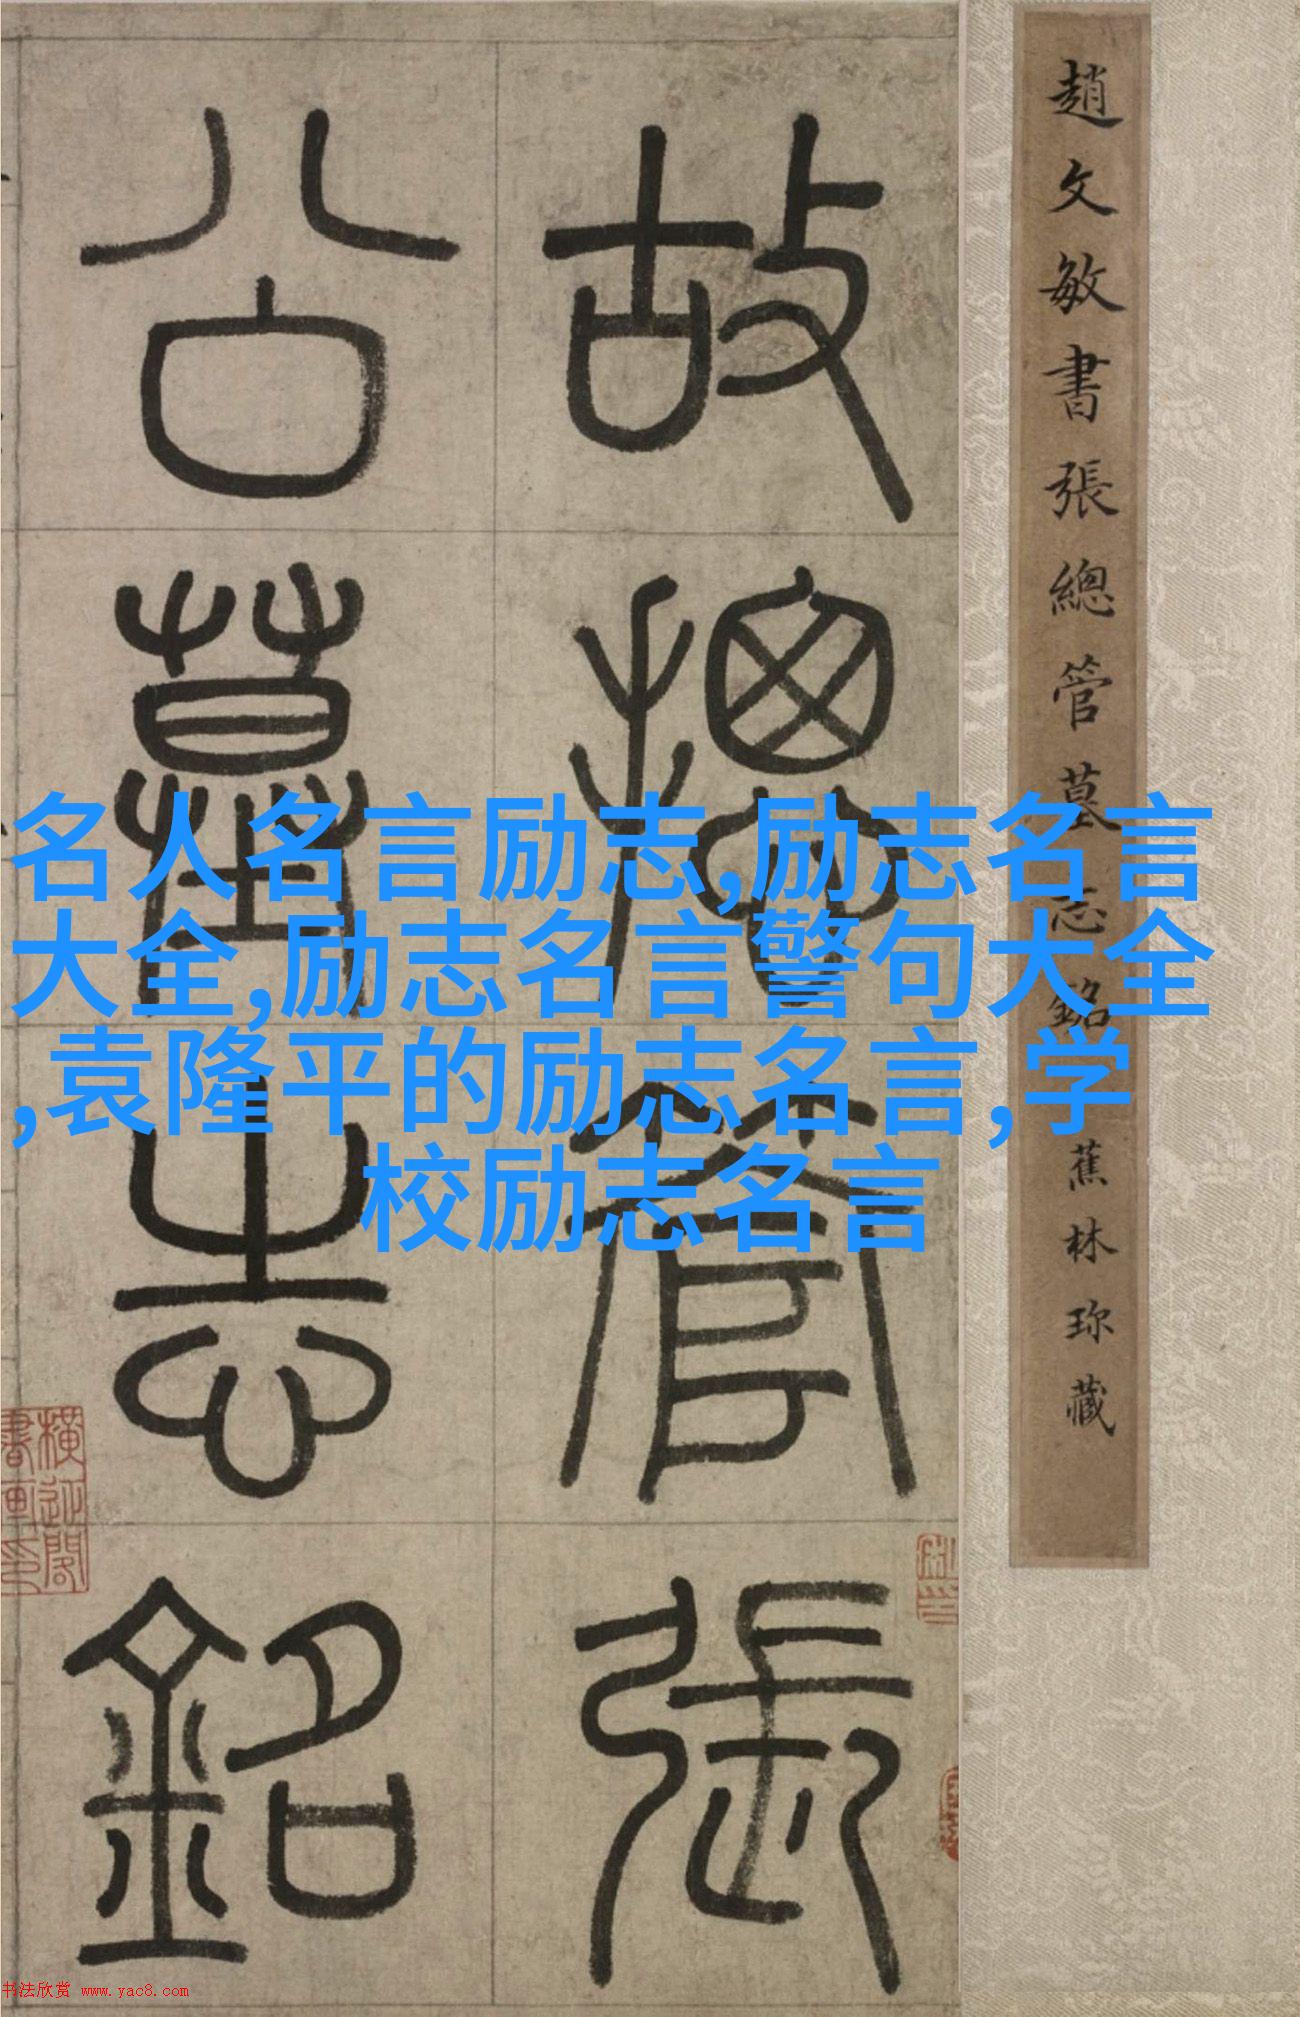 趙文敏書張總管墓志銘 蕉林珍藏
故揔管張
公墓志銘
名人名言励志,励志名言
大全,励志名言警句大全
,袁隆平的励志名言,学
校励志名言
书法欣赏 www.yac8.com